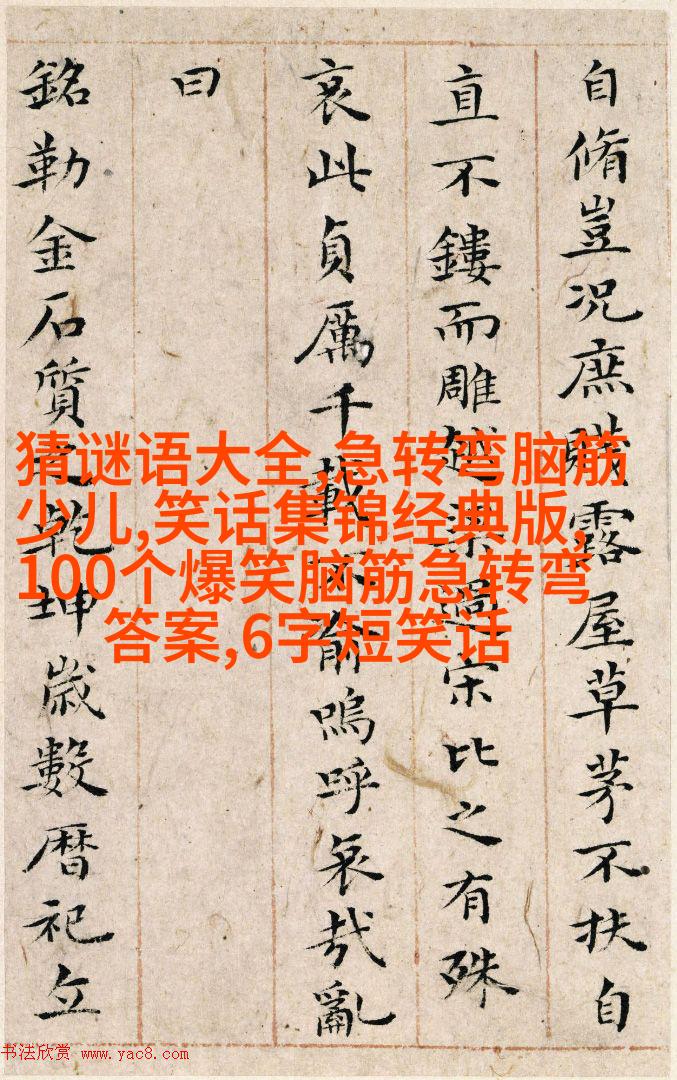 自脩豈況庶賤露屋草茅不扶自
直不鏤而雕越梁過宋比之有殊
哀此貞厲千載不渝嗚呼哀哉亂
曰
銘勒金石質之乾坤歲數曆祀丘
猜谜语大全,急转弯脑筋
少儿,笑话集锦经典版,
100个爆笑脑筋急转弯
答案,6字短笑话
书法欣赏 www.yac8.com